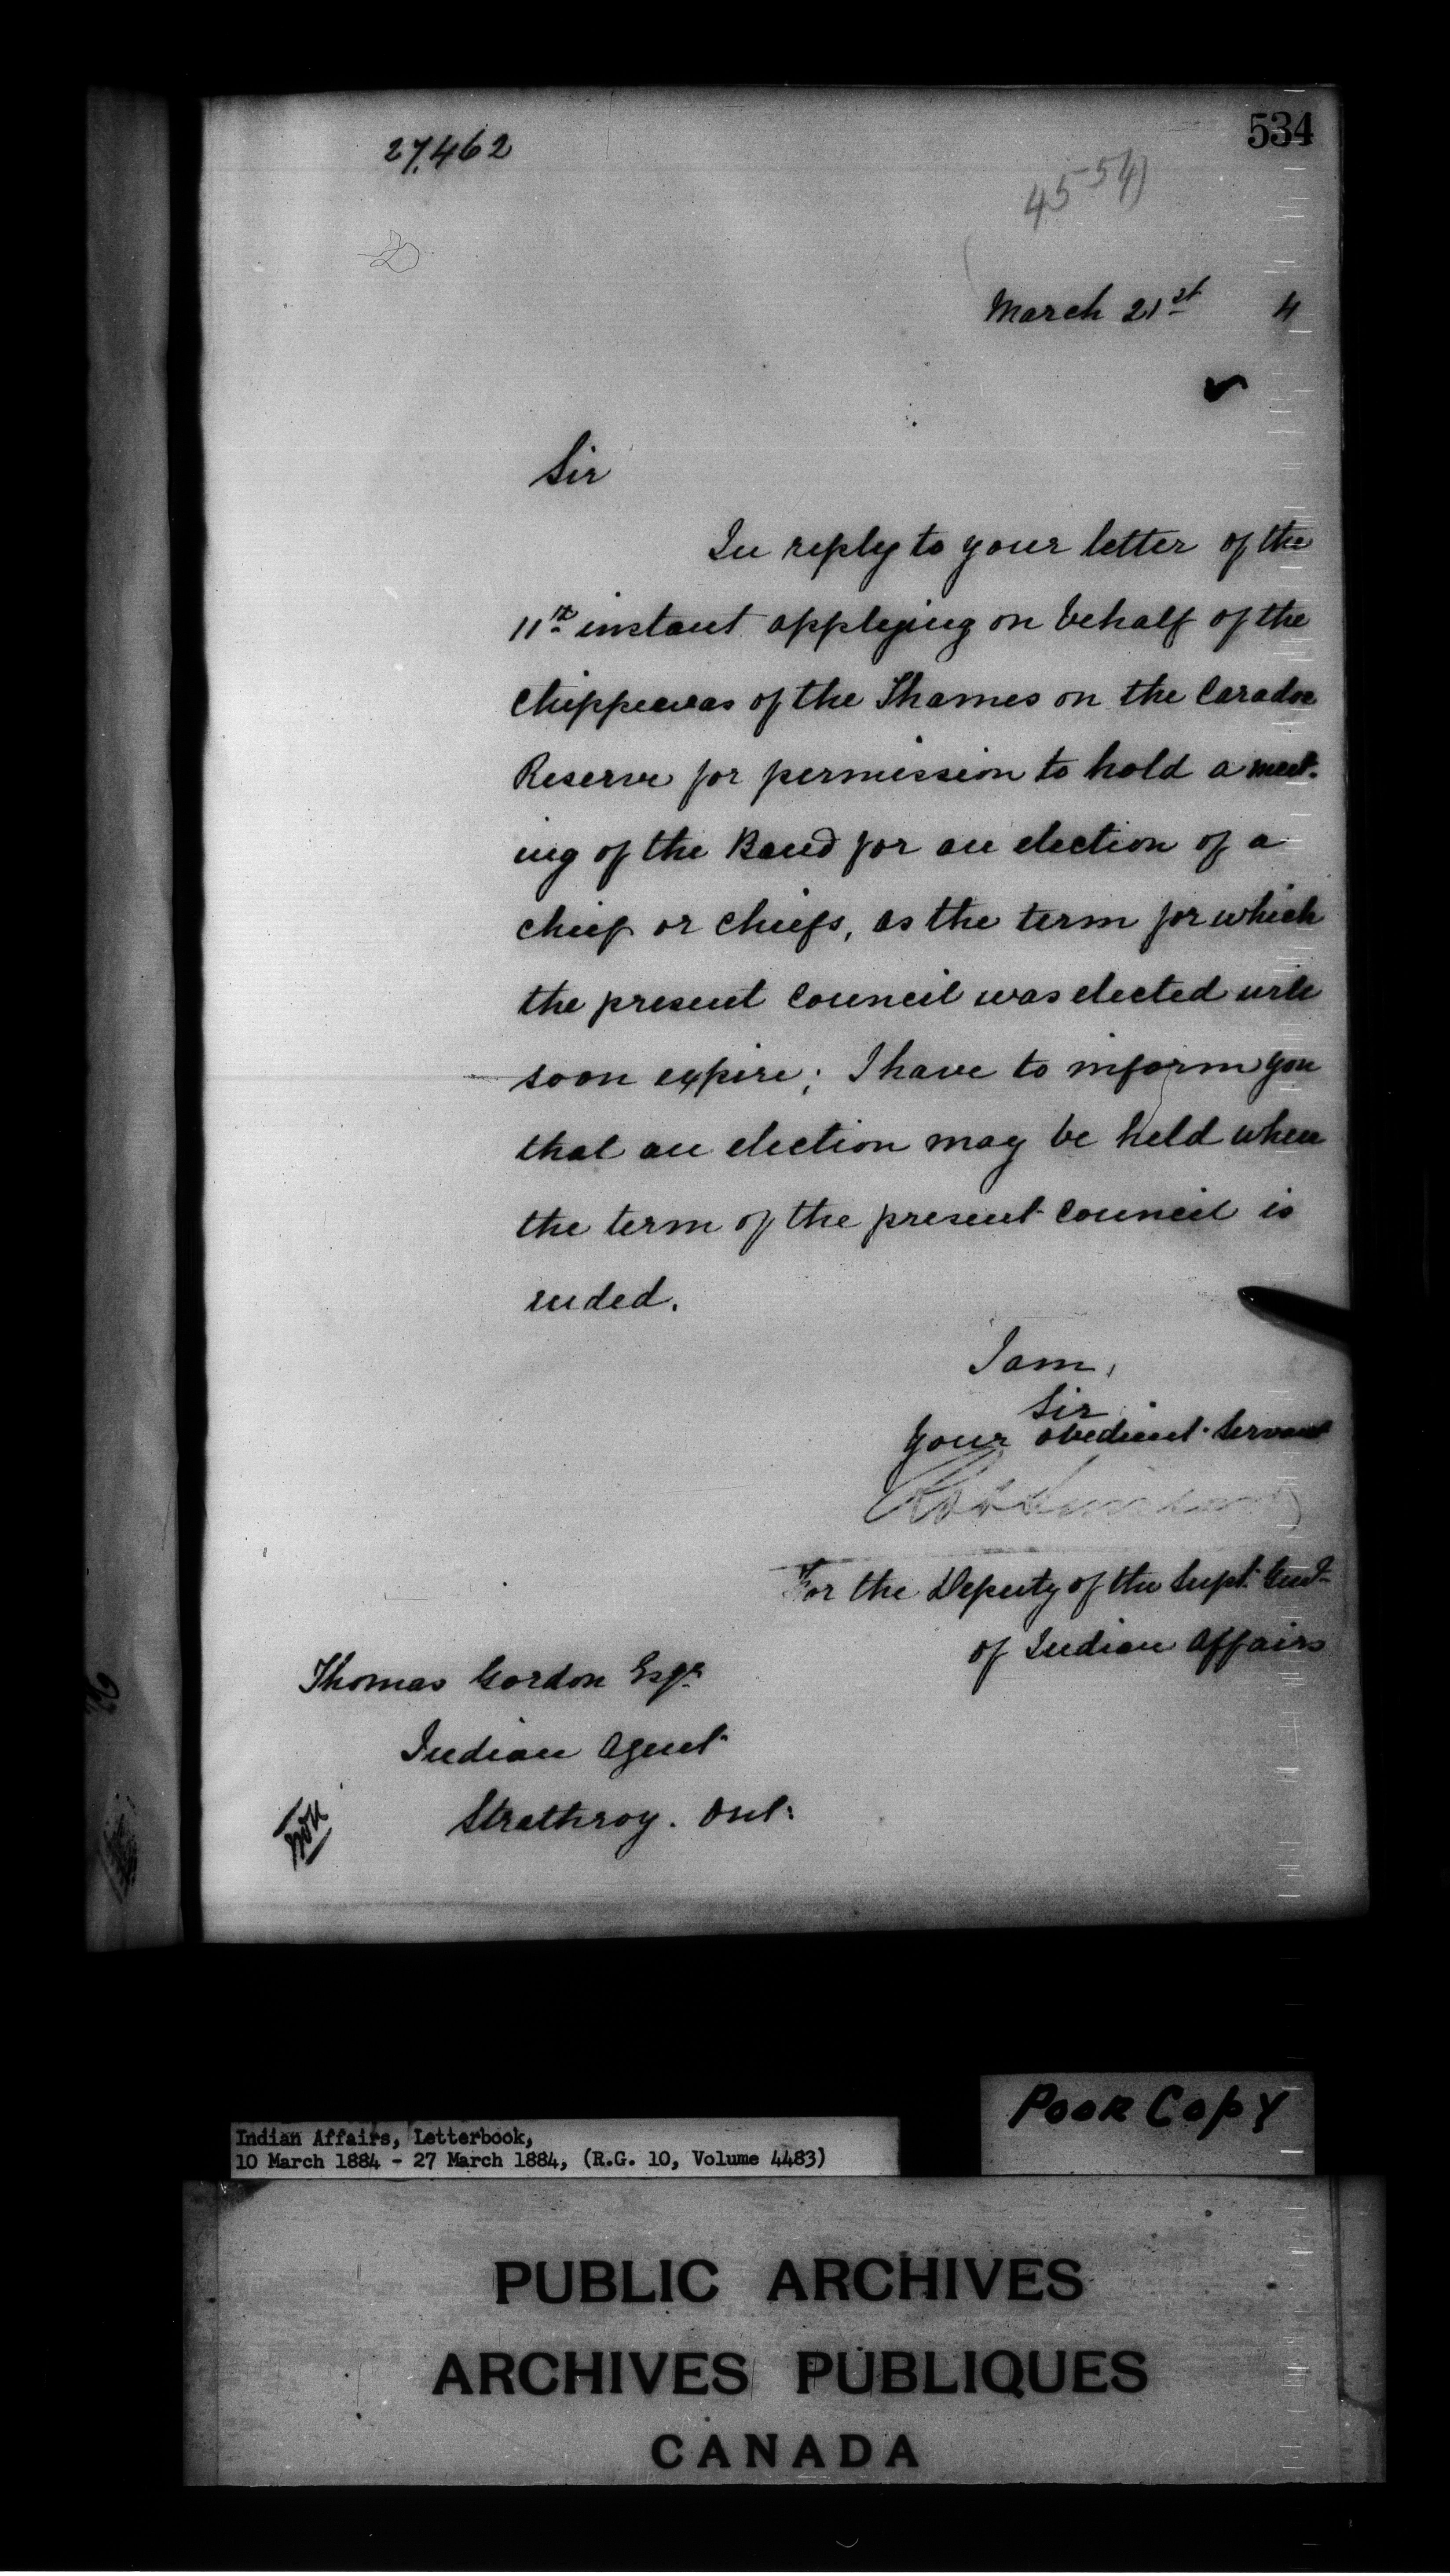 27,462
534
45 54)
March 21st 4
Sir
In reply to your letter of the
11th instant applying on behalf of the
Chippewas of the Thames on the Caradoc
Reserve for permission to hold a meet-
ing of the Band for an election of a
chief or chiefs, as the term for which
the present Council was elected will
soon expire; I have to inform you
that an election may be held when
the term of the present Council is
ended.
I am,
Sir
Your obedient Servant
For the Deputy of the Supt. Genl.
of Indian Affairs
Thomas Gordon Esqr.
Indian Agent
Strathroy. Ont.
Poor Copy
Indian Affairs, Letterbook,
10 March 1884 - 27 March 1884, (R.G. 10, Volume 4483)
PUBLIC ARCHIVES
ARCHIVES PUBLIQUES
CANADA